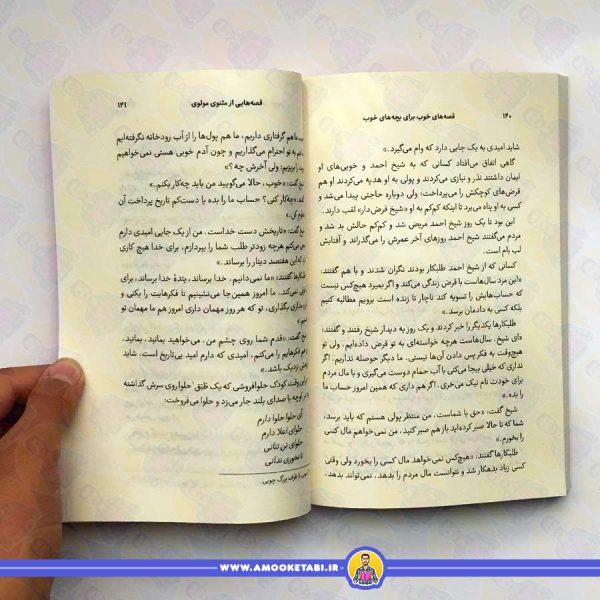 ۱۴۰
قصه‌های خوب برای بچه‌های خوب
شاید امیدی به یک جایی دارد که وام می‌گیرد.»
گاهی اتفاق می‌افتاد کسانی که به شیخ احمد و خوبی‌های او
ایمان داشتند نذر و نیازی می‌کردند و پولی به او هدیه می‌کردند او هم
قرض‌های کوچکش را می‌پرداخت؛ ولی دوباره حاجتی پیدا می‌شد و
کسی به او پناه می‌برد تا اینکه کم‌کم به او «شیخ قرض‌دار» لقب دارند.
این بود تا یک روز شیخ احمد مریض شد و کم‌کم حالش بد شد و
مردم می‌گفتند شیخ احمد روزهای آخر عمرش را می‌گذراند و آفتابش
لب بام است.
کسانی که از شیخ احمد طلبکار بودند نگران شدند و با هم گفتند:
«این مرد سال‌هاست با قرض زندگی می‌کند و اگر بمیرد هیچ‌کس نیست
که حساب‌هایش را تسویه کند ناچار تا زنده است برویم مطالبه کنیم
بلکه کسی به دادمان برسد.»
طلبکارها یکدیگر را خبر کردند و یک روز به دیدار شیخ رفتند و گفتند:
«ای شیخ، سال‌هاست هرچه خواسته‌ای به تو قرض داده‌ایم، ولی تو
هیچ‌وقت به فکر پس دادن آن‌ها نیستی. ما دیگر حوصله نداریم. اگر
نداری که خیلی بیجا می‌کنی با آب حمام دوست می‌گیری و با مال مردم
برای خودت نام نیک می‌خری، اگر هم داری که همین امروز حساب ما
را بده.»
شیخ گفت: «حق با شماست. من منتظر پولی هستم که باید برسد،
شما که تا حالا صبر کرده‌اید باز هم صبر کنید، من نمی‌خواهم مال کسی
را بخورم.»
طلبکارها گفتند: «هیچ‌کس نمی‌خواهد مال کسی را بخورد ولی وقتی
کسی زیاد بدهکار شد و نتوانست مال مردم را بدهد، نمی‌تواند بدهد.
قصه‌هایی از مثنوی مولوی
۱۴۱
ما هم گرفتاری داریم، ما هم پول‌ها را از آب رودخانه نگرفته‌ایم
به تو احترام می‌گذاریم و چون آدم خوبی هستی نمی‌خواهیم
بریزیم؛ ولی آخرش چه؟»
گفت: «خوب، حالا می‌گویید من باید چه‌کار بکنم.»
«چه‌کار کنی؟ حساب ما را بده یا دست‌کم تاریخ پرداخت آن
کن.»
گفت: «تاریخش دست خداست. من از یک جایی امیدی دارم
می‌کنم هرچه زودتر طلب شما را بپردازم، برای خدا هیچ کاری
که این هفتصد دینار را برساند.»
گفتند: «ما نمی‌دانیم. خدا برساند، بندهٔ خدا برساند، برای
نمی‌کند. ما امروز همین‌جا می‌نشینیم تا فکرهایت را بکنی و
بگذاری، تو که هر روز مهمانی داری امروز هم ما مهمان تو
گفت: «قدم شما روی چشم من. می‌خواهید بمانید، بمانید.
فکرهایم را می‌کنم، امیدی که دارم امید بی‌تاریخ است. شاید
نزدیک باشد.»
وقت کودک حلوافروشی که یک طَبَق حلوا روی سرش گذاشته
کوچه با صدای بلند جار می‌زد و حلوا می‌فروخت:
آی حلوا حلوا دارم
حلوای اعلا دارم
حلوای تن تنانی
تا نخوری ندانی
ظرف بزرگ چوبی.
WWW.AMOOKETABI.IR